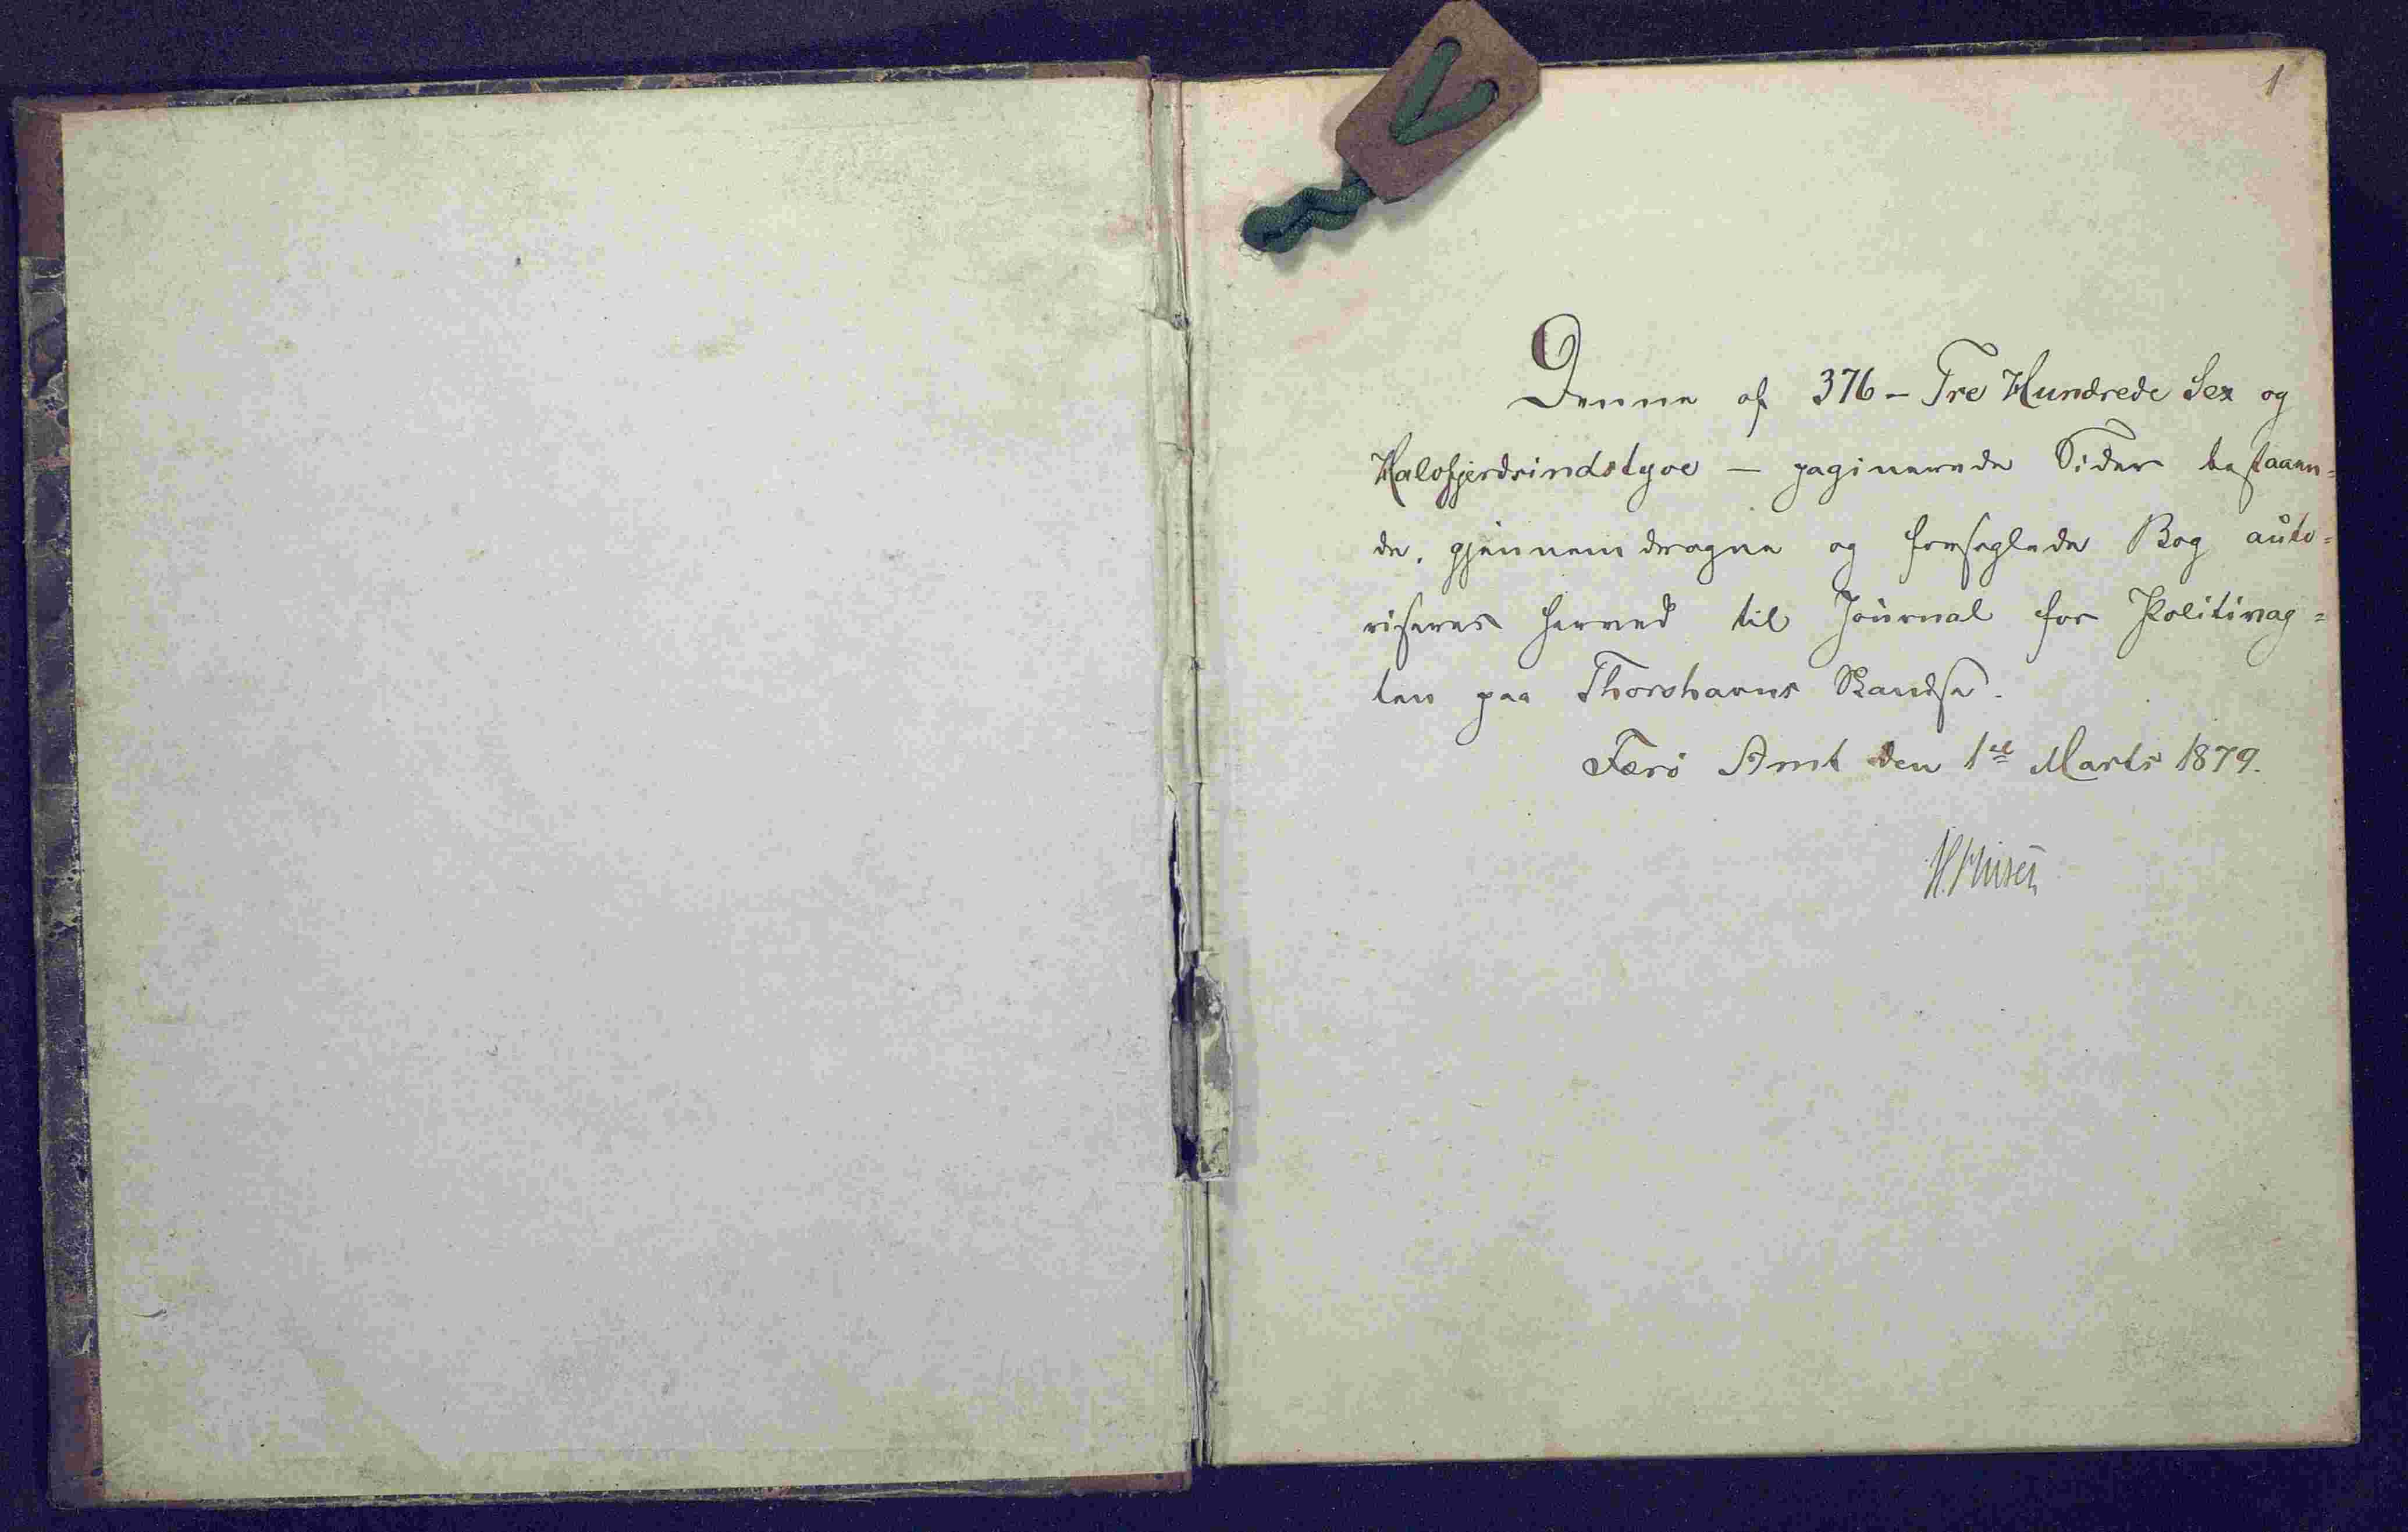 1
Denne af 376 - Tre Hundrede Sex og
Halvfjerdsindstyve - paginerede Sider bestaaen=
de, gjennemdragne og forseglede Bog auto=
riseres herved til Journal for Politivag=
ten paa Thorshavns Skandse.
Færö Amt den 1ste Marts 1879.